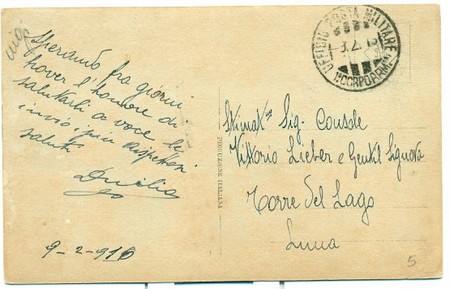 Sperando fra giorni
haver l'honore di
salutarli a voce le
invio i più rispettosi
saluti
Duilia
9-2-916
UFFICIO POSTA MILITARE
PRODUZIONE ITALIANA
Stimat Sig. Console
Vittorio Lieber e Gentil Signora
Torre del Lago
Lucca
5